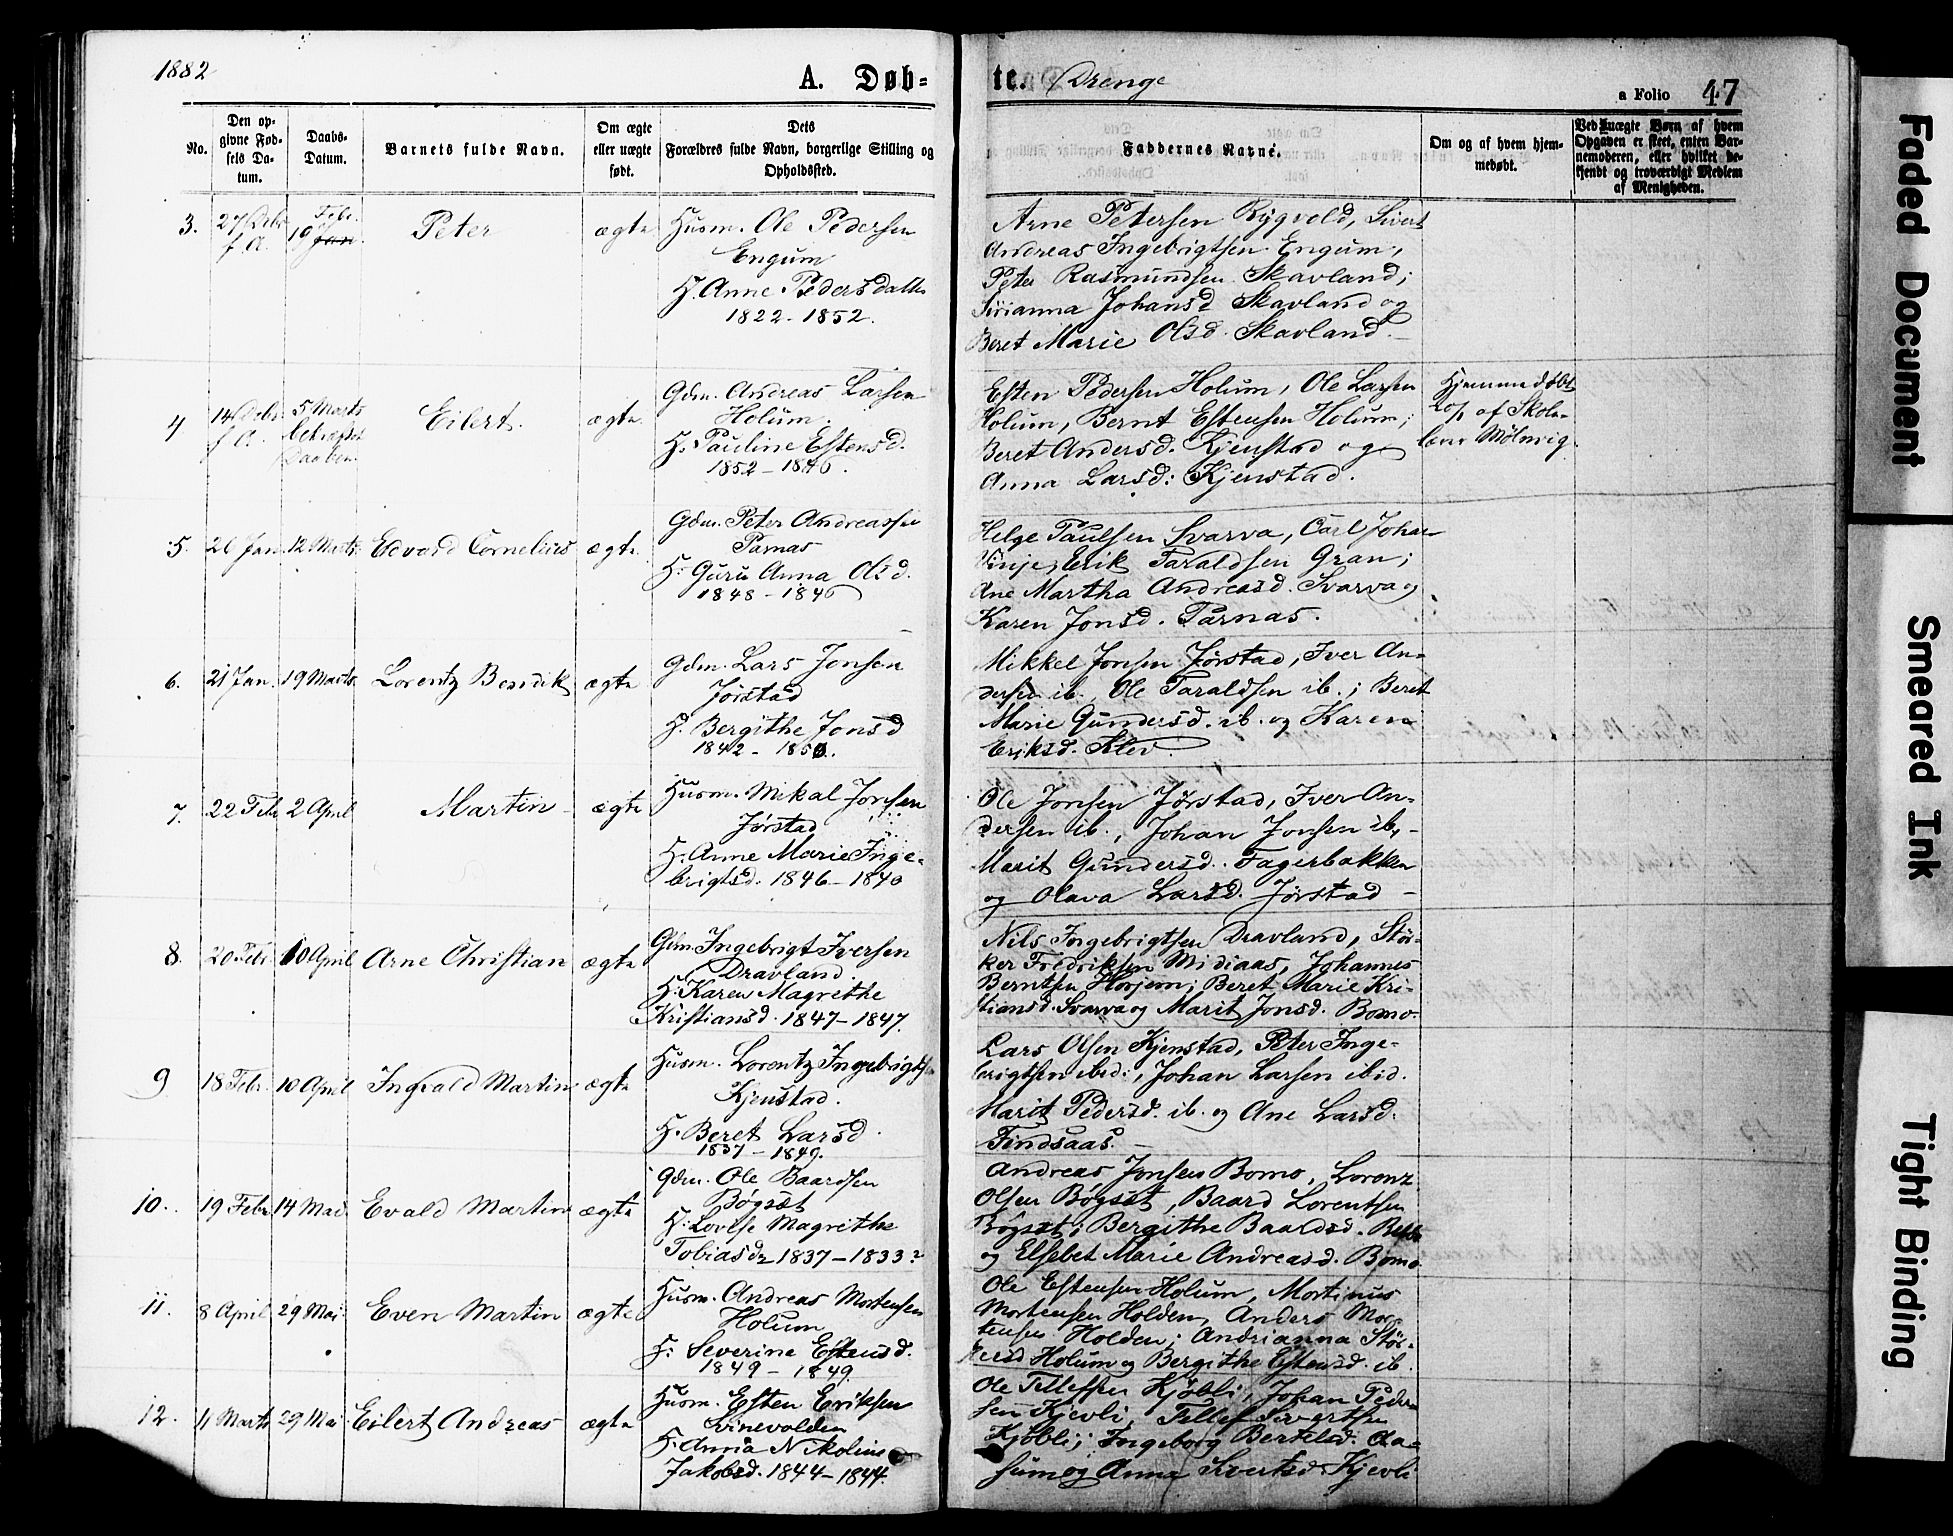 1882
A. Døb-
te. Drenge
a Folio 47
No.
Den op-
givne Fød-
sels Da-
tum.
Daabs-
Datum.
Barnets fulde Navn.
Om ægte
eller uægte
født.
Dets
Forældres fulde Navn, borgerlige Stilling og
Opholdssted.
Faddernes Navne.
Om og af hvem hjem-
medøbt.
Ved uægte Børn af hvem
Opgaven er skeet, enten Bar-
nemoderen, eller hvilket be-
kjendt og troværdigt Medlem
af Menigheden.
3.
27 Debr
f. A.
Febr.
19 Jan.
Peter
ægte
Husm. Ole Pedersen
Engum
H. Anne Pedersdatter
1822 - 1852.
Arne Petersen Rygvold, Sivert
Andreas Ingebrigtsen Engum,
Peter Rasmundsen Skavland;
Johansd Skavland og
Beret Marie Olsd. Skavland.
4.
14 Debr
f. A.
5 Marts
bekræftet
Daaben
Eilert.
ægte
Gdm. Andreas Larsen
Holum.
H. Pauline Estensd.
1852 - 1846.
Esten Pedersen Holum, Ole Larsen
Holum, Bernt Estensen Holum;
Beret Andersd. Kjenstad og
Anna Larsd: Kjenstad.
Hjemmedøbt
af Skole-
lærer Mølnvig.
5.
26 Jan
12 Marts
Edvard Cornelius
ægte
Gdm. Peter Andreassen
Parnas
H: Guru Anna Olsd.
1848 - 1846
Helge Paulsen Svarva, Carl Johan
Vinje, Erik Taraldsen Gran;
Ane Martha Andreasd. Svarva og
Karen Jonsd. Parnas.
6.
21 Jan.
19 Marts
Lorentz Bendik
ægte
Gdm. Lars Jonsen
Jørstad
H. Bergithe Jonsd
1842 - 1850.
Mikkel Jonsen Jørstad, Iver An-
dersen ib., Ole Taraldsen ib.; Beret
Marie Gundersd. ib. og Karen
Eriksd. Klev.
7.
22 Febr
2 April
Martin
ægte
Husm. Mikal Jonsen
Jørstad
H: Anne Marie Inge-
brigtsd. 1846 - 1840
Ole Jonsen Jørstad, Iver An-
dersen ib., Johan Jonsen ib, -
Marit Gundersd. Fagerbakken
og Olava Larsd. Jørstad -
8.
20 Febr
10 April
Arne Christian
ægte
Gdm. Ingebrigt Iversen
Dravland.
H: Karen Magrethe
Kristiansd. 1847 - 1847.
Nils Ingebrigtsen Dravland, Stør-
ker Fredriksen Midiaas, Johannes
Berntsen Horjem; Beret Marie Kri-
stiansd. Svarva og Marit Jonsd. Bomo.
9
18 Febr.
10 April
Ingvald Martin
ægte
Husm. Lorentz Ingebrigts
Kjenstad.
H. Beret Larsd.
1837 - 1849.
Lars Olsen Kjenstad, Peter Inge-
brigtsen ibid:, Johan Larsen ibid.
Marit Pedersd. ib. og Ane Larsd.
Findsaas. -
10.
19 Febr
14 Mai
Evald Martin
ægte
Gdm. Ole Baardsen
Bøgset
H: Lovise Magrethe
Tobiasd. 1837 - 1833?
Andreas Jonsen Bomo, Lorenz
Olsen Bøgset, Baard Lorentsen
Bøgset; Bergithe Baardsd.
og Elsebet Marie Andreasd. Bomo
11.
8 April
29 Mai
Even Martin
ægte
Husm. Andreas Mortensen
Holum
H: Severine Estensd.
1849 - 1849
Ole Estensen Holum, Mortinus
Mortensen Holden, Anders Mor-
tensen Holden; Andrianna Stør-
kersd Holum og Bergithe Estensd. ib.
12.
11 Marts
29 Mai
Eilert Andreas
ægte
Husm. Esten Eriksen
Lønevolden
H. Anna Nikoline
Jakobsd. 1844 - 1844.
Ole Tillefsen Kjøbli, Johan Peder-
sen Kjevli, Tillef Sivertsen
Kjøbli; Ingeborg Bertelsd. Aa-
sum og Anne Sivertsd Kjevli
Faded Document
Smeared Ink
Tight Binding